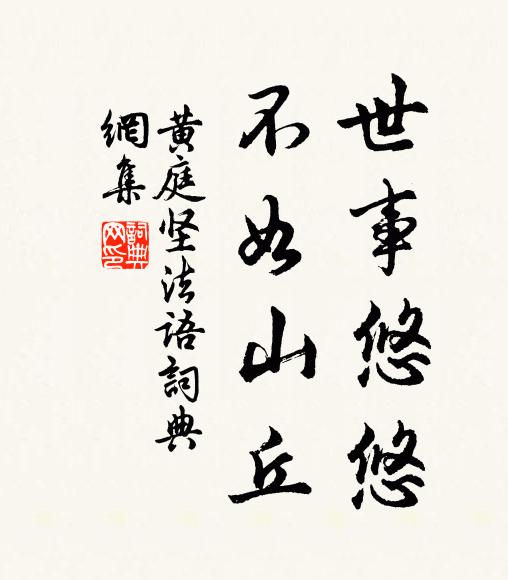 世事悠悠
不如山丘
黄庭坚法语詞典
網集
詞典
网印